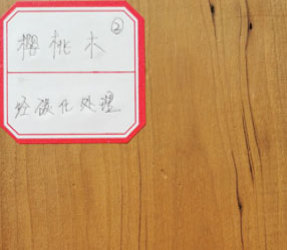 樱桃木 ②
经碳化处理